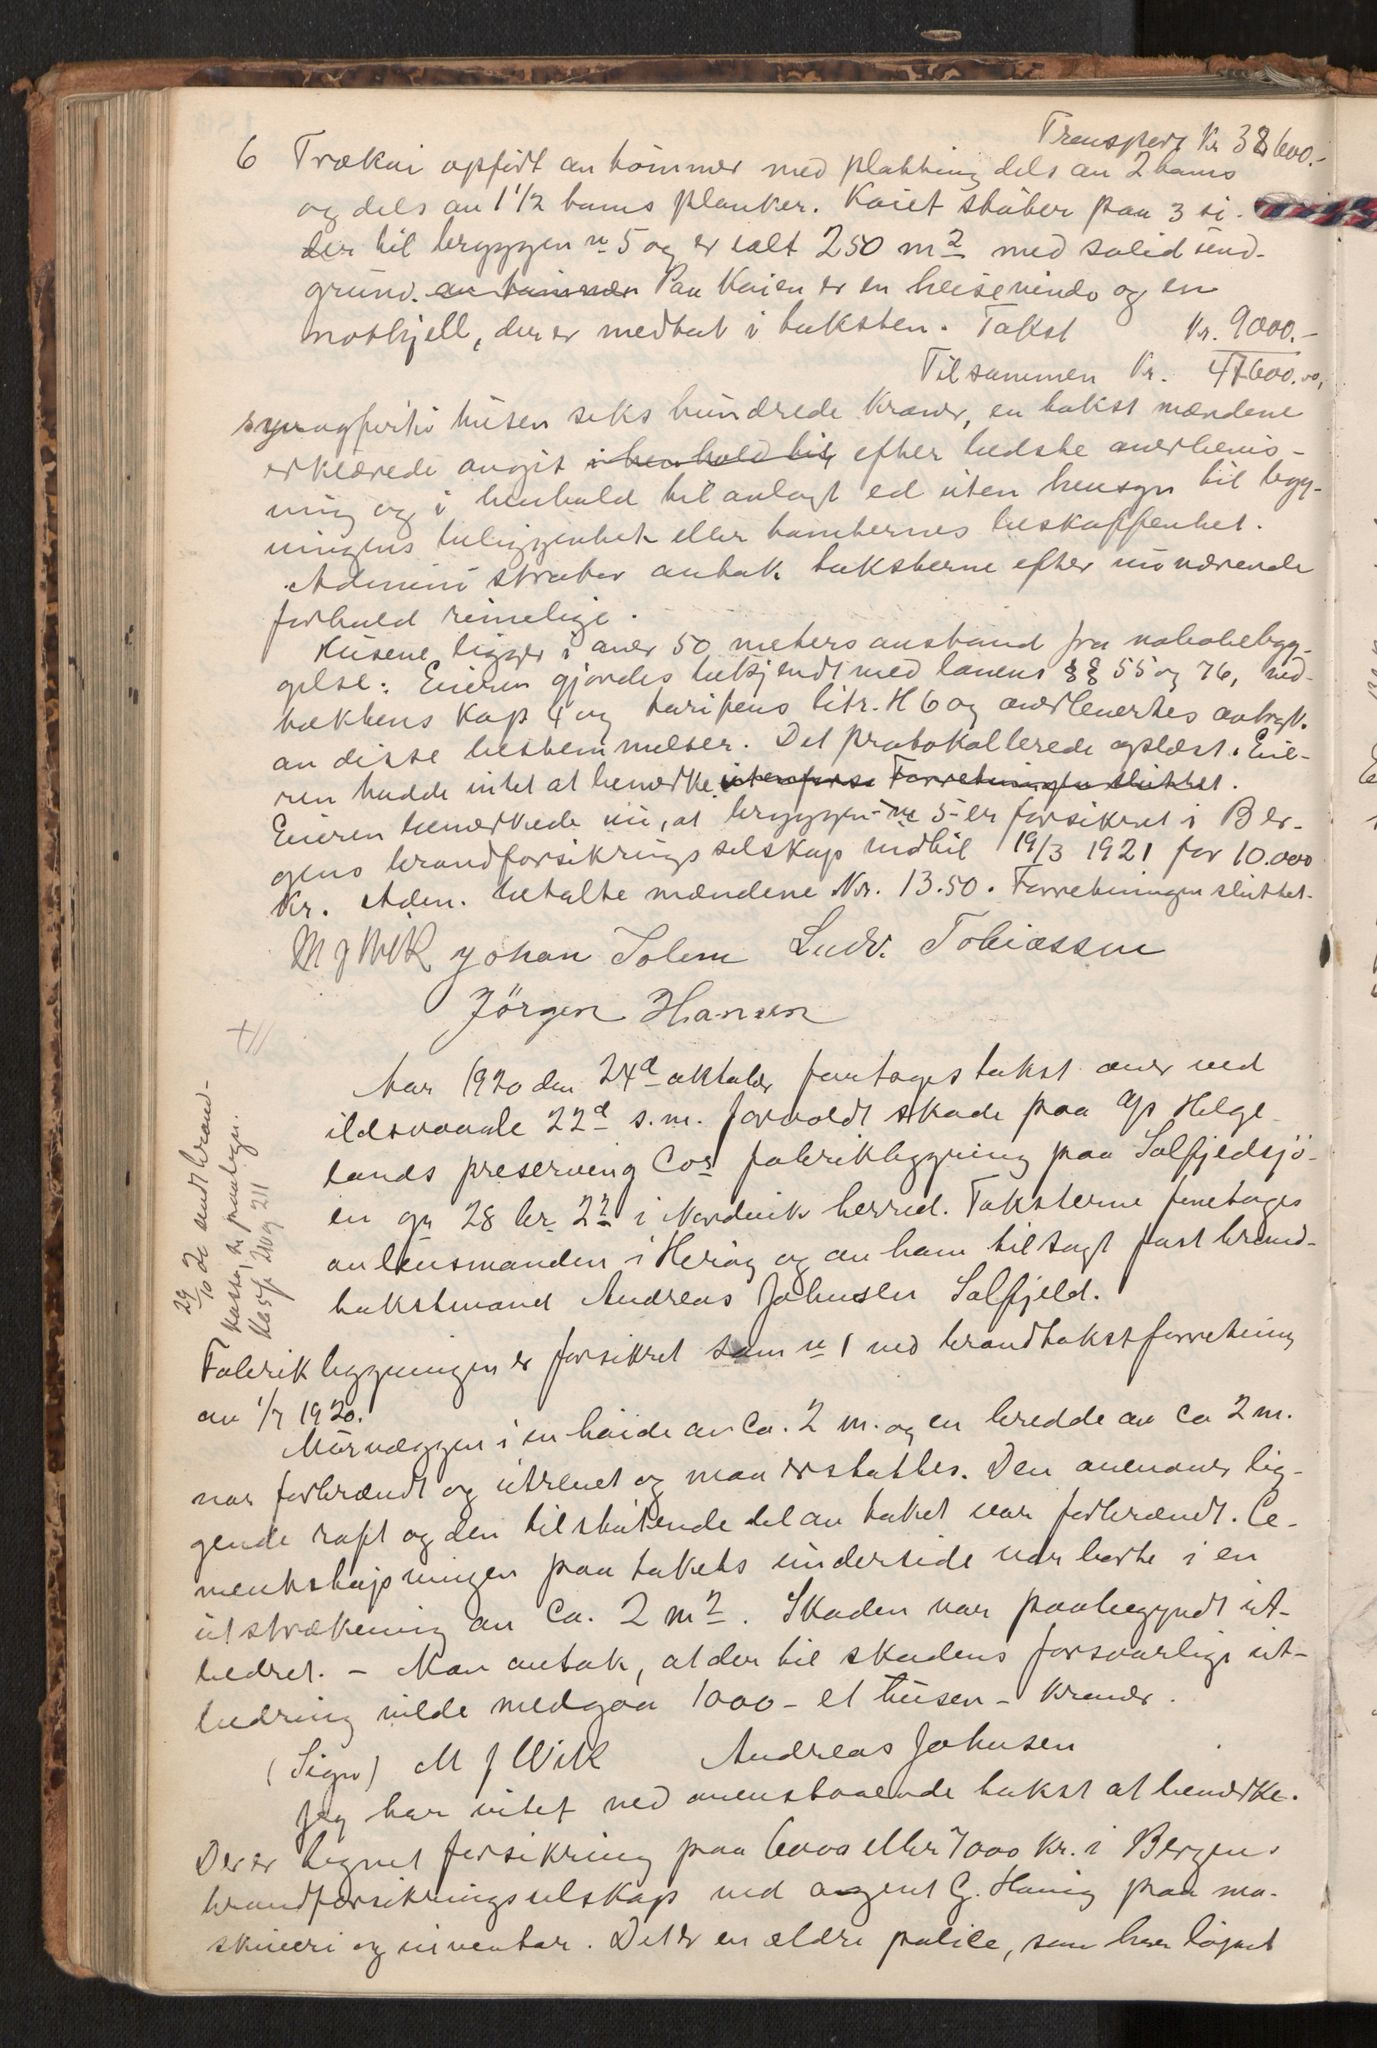 Transport Kr 38600.-
6 Trækai opført av tømmer med plakking dels av 2 toms
og dels av 1 1/2 toms planker. Kaiet støter paa 3 si-
der til bryggen n 5 og er ialt 250 m2 med solid und-
grund. av tømmer Paa Kaien er en heisevinde og en
notkjell, der er medtat i taksten. Takst Kr. 9000.-
Tilsammen Kr. 47600.00,
syvogførti tusen seks hundrede kroner, en takst mændene
erklærede avgit i henhold til, efter bedste overbevis-
ning og i henhold til avlagt ed uten hensyn til byg-
ningens beliggenhet eller tomternes beskaffenhet.
Administrator antok taksterne efter nuværende
forhold rimelige.
Husene ligger i over 50 meters avstand fra nabobebyg-
gelse. Eieren gjordes bekjendt med lovens §§ 55 og 76, ved-
tækkens Kap 4 og tarifens litr. H 6 og overlevertes avtryk
av disse bestemmelser. Det protokollerede oplæst. Eie-
ren hadde intet at bemerke. Forretningen sluttet.
Eieren bemerkede nu, at bryggen - n 5 - er forsikret i Ber-
gens brandforsikringsselskap indtil 19/3 1921 for 10.000
Kr. Adm. betalte mændene Kr. 13.50. Forretningen sluttet.
M J Wik Johan Solem Ludv. Tobiassen
Jörgen Hansen
+//
Aar 1920 den 24d oktober foretoges takst over ved
ildsvaade 22d s.m. forvoldt skade paa A/s Helge-
lands preserving Cos fabrikbygning paa Solfjeldsjö-
en gr 28 br 22 i Nordvik herred. Taksterne foretoges
av lensmanden i Herøy og av ham tilsagt fast brand-
takstmand Andreas Johnsen Solfjeld.
29/10 20 sendt brand-
kassen
Fabrikbygningen er forsikret som n 1 ved brandtakstforretning
av 1/7 1920.
Murvæggen i en høide av Ca. 2 m. og en bredde av ca 2 m.
var forbrændt og utrevet og maa erstattes. Den ovenover lig-
gende raft og den tilstøtende del av taket var forbrændt. Ce-
mentstøpningen paa takets underside var borte i en
utstrækning av Ca. 2 m2. Skaden var paabegyndt ut-
bedret. - Man antok, at der til skadens forsvarlige ut-
bedring vilde medgaa 1000 - et tusen - kroner.
(Sign) M J Wik Andreas Johnsen
Jeg har intet ved ovenstaaende takst at bemerke.
Der er tegnet forsikring paa 6000 eller 7000 kr. i Bergens
brandforsikringsselskap ved agent G. Hanig paa ma-
skineri og inventar. Det er en ældre police, som har løpet